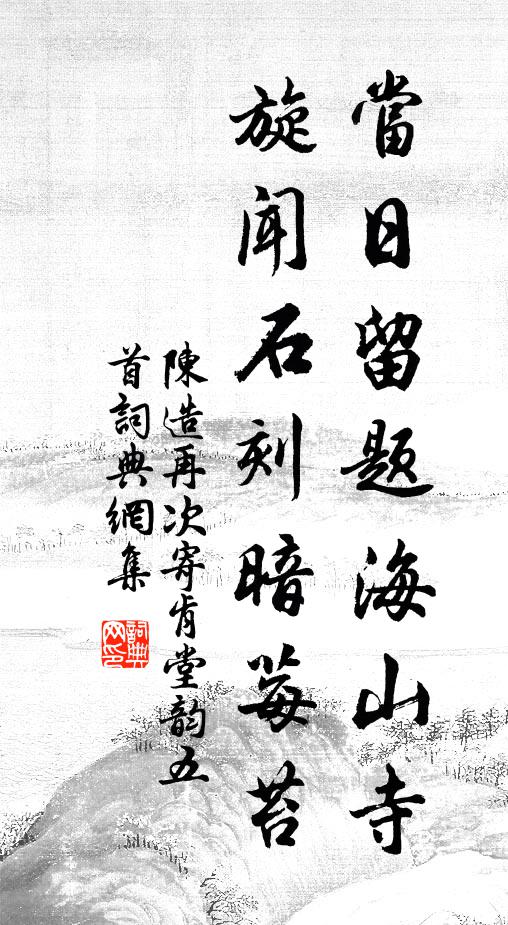 當日留題海山寺
旋聞石刻暗莓苔
陳造再次寄肯堂韵五
首詞典網集
詞典
网印